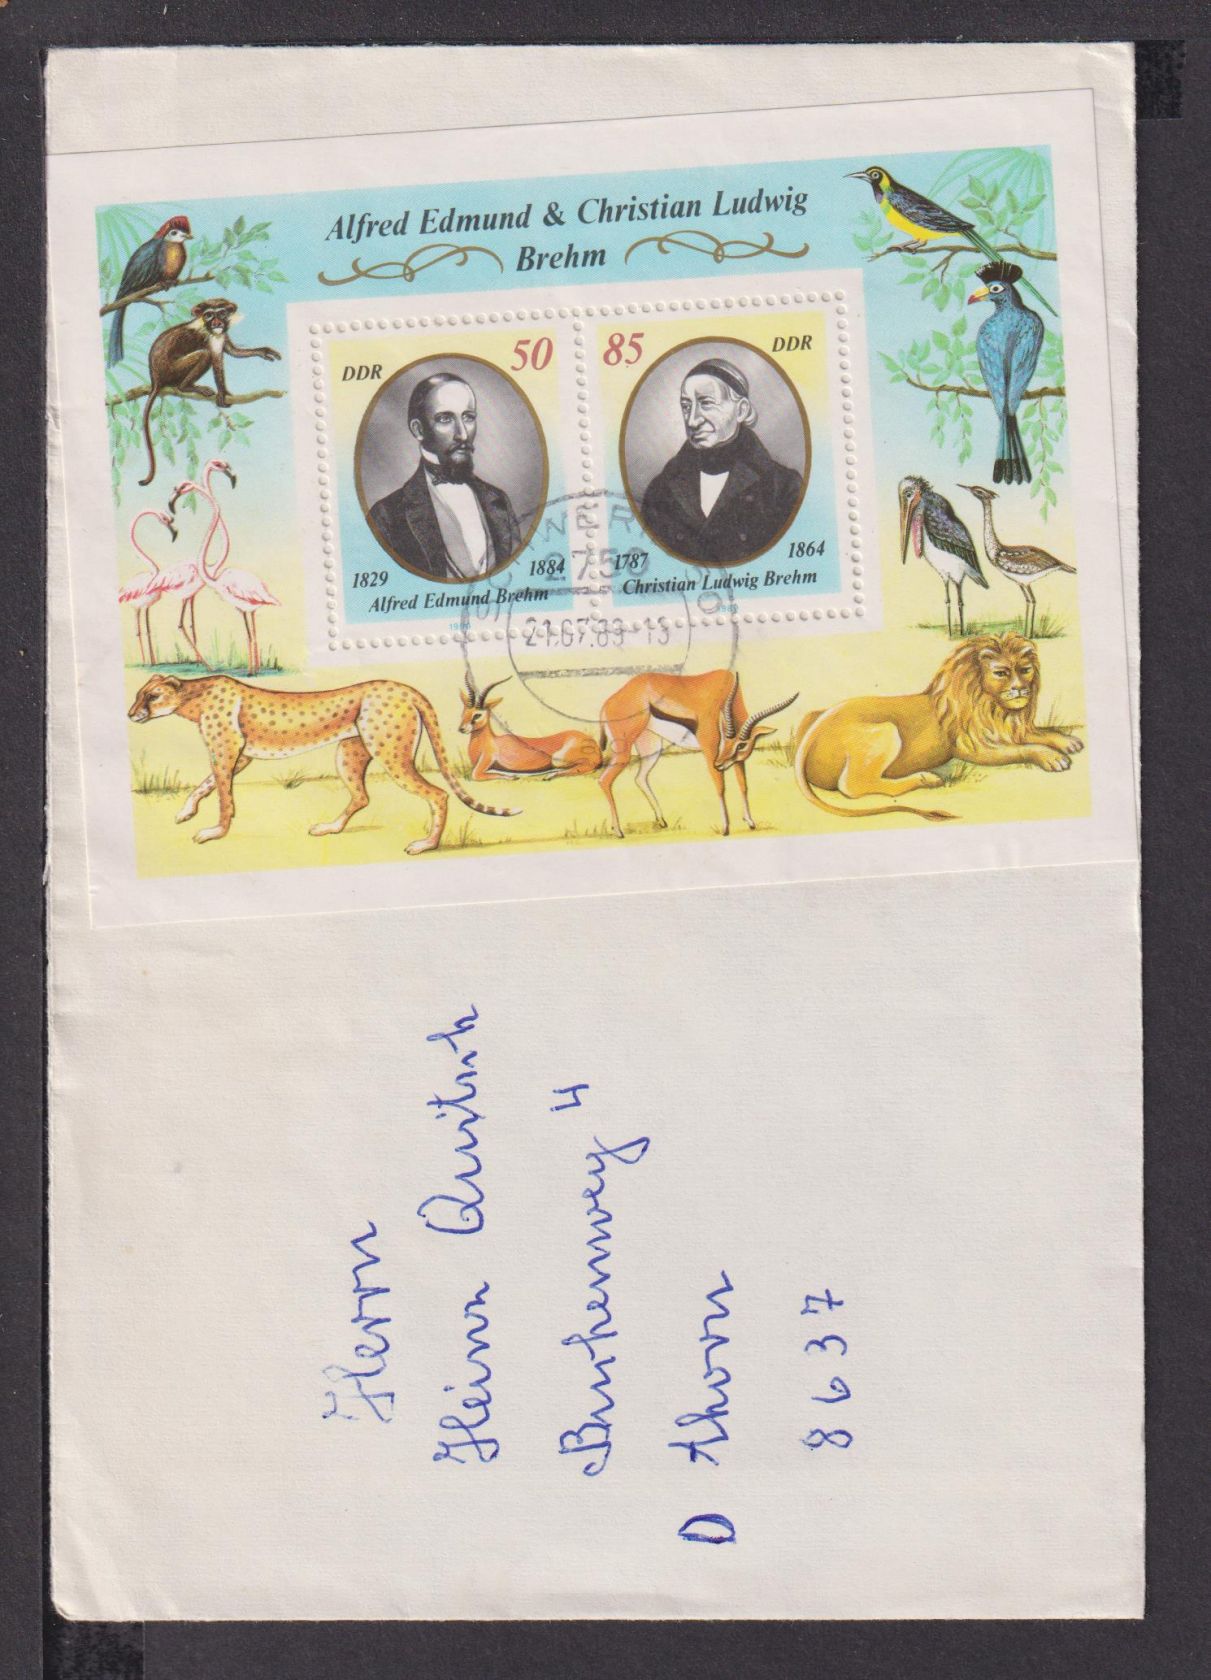 Alfred Edmund & Christian Ludwig
Brehm
DDR 50
1829 1884
Alfred Edmund Brehm
85 DDR
1787 1864
Christian Ludwig Brehm
1989
2750
21.07.89-13
Herrn
Heinr
4
D Ahorn
8637